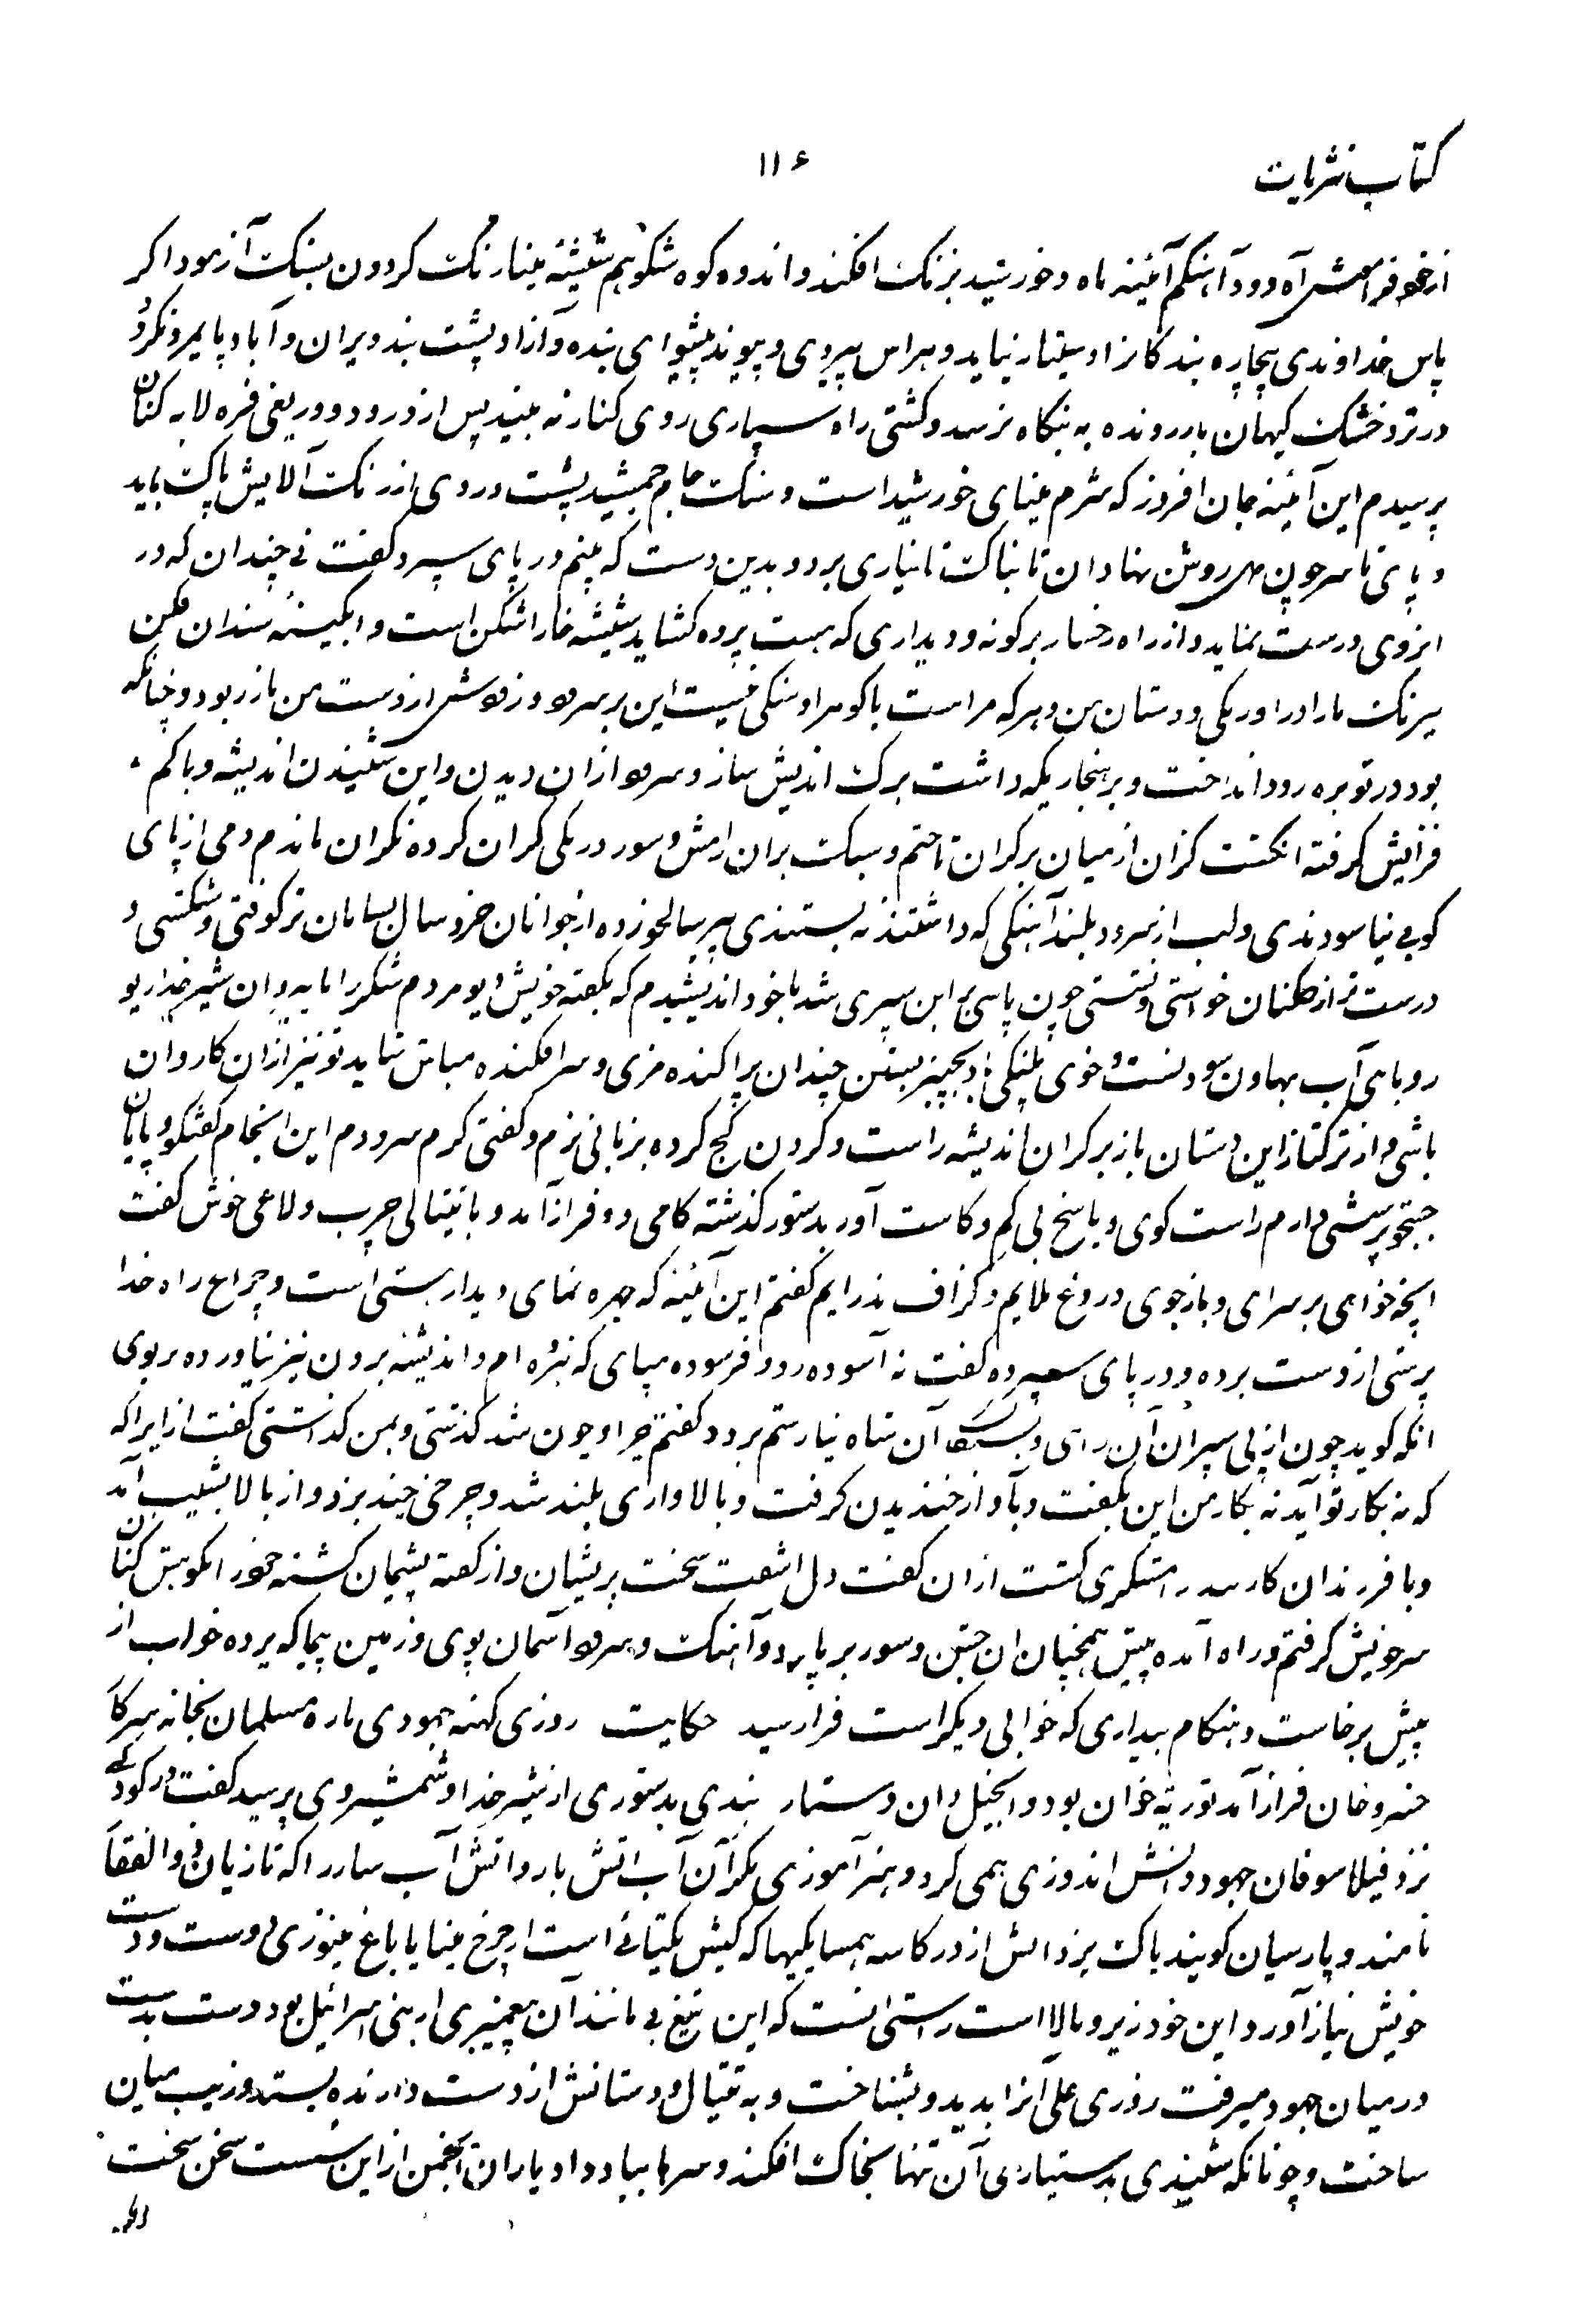 کتاب نثریات
۱۱۶
از خود فرامش آه دود آهنگم آئینه ماه و خورشید بزنک افکند و اندوه کوه شکوهم شیشهٔ مینا رنک کردون بسنک آزمود اکر
پاس خداوندی بیچاره بندکانرا دستیار نیاید و هراس پیروی و پیوند پیشوای بنده و آزاد پشت بند ویران و آباد پایمرد نکردد
در تر و خشک کیهان بار رونده به بنکاه نرسد و کشتی راه سپاری روی کنار نه بیند پس از درود و دریغی فره لابه کنان
پرسیدم این آئینه جان افروز که شرم مینای خورشید است و سنک جام جمشید پشت و روی از زنک آلایش پاک باید
و پای تا سر چون مهر روشن نهادان تابناک تا نیاری برد و بدین دست که بینم در پای سپرد کفت نی چندان که در
ابروی درست نماید و از راه رخسار بر کونه و دیداری که هست پرده کشاید شیشه خارا شکن است و ابکینه سندان فکن
نیرنک مارا در اورنکی و دستان من و هر که مراست با کوهر او سنکی نیست این بر سرود و زفوش از دست من باز ربود و چنانکه
بود در توبره رود انداخت و بر هنجاریکه داشت برک اندیش ساز و سرود از ان دیدن و این شنیدن اندیشه و با کم
فزایش کرفته انکشت کزان از میان بر کران تاختم و سبک بران رامش و سور در یکی کران کرده نکران ماندم دمی از پای
کوبی نیاسودندی و لب از سرود بلند آهنکی که داشتند نه بستندی پیر سالخورده از جوانان خرد سال بسامان تر کوفتی و شکستی و
درست تر از طفلان خواستی و نشستی چون پاسی بر این سپری شد با خود اندیشیدم که بکفته خویش دیو مردم شکر را با به وان شیر خدا ریو
روباهی آب بهاون سودنست و خوی پلنکی باد بچنبر بستن چندان پراکنده مزی و سرافکنده مباش شاید تو نیز از ان کاروان
باشی و از ترکتاز این دستان باز بر کران اندیشه راست و کردن کج کرده بزبانی نرم و کفتی کرم سرودم این انجام کفتکو و پایان
جستجو پرسشی دارم راست کوی و پاسخ بی کم و کاست آور بدستور کذشته کامی دو فراز آمد و با تیتالی چرب و لاغی خوش کفت
انچه خواهی بر سرای و باز جوی دروغ نلایم و کزاف ندرایم کفتم این آئینه که چهره نمای دیدار هستی است و چراغ راه خدا
پرستی از دست برده و در پای سپرده کفت نه آسوده رو و فرسوده مپای که نبرده ام و اندیشه بردن نیز نیاورده بر بوی
انکه کوید چون از پی سپران آن رای و بستکان آن شاه نیارستم برد و کفتم چرا و چون شد کذشتی و بمن کذاشتی کفت از ایرا که
که نه بکار تو آید نه بکار من این بکفت و بآواز خندیدن کرفت و بالا واری بلند شد و چرخی چند بزد و از بالا بشیب آمد
و با فرزندان کار سد رامشکری کشت از ان کفت دل اشفت سخت پریشان و از کفته پشیمان کشته خود را نکوهش کنان
سر خویش کرفتم و راه آمده پیش همچنان ان جشن و سور بر پا بود و آهنک و سرود آسمان پوی و زمین پیما که پرده خواب از
پیش برخاست و هنکام بیداری که خوابی دیکر است فرا رسید حکایت روزی کهنه جهودی تازه مسلمان بخانه سرکار
خسرو خان فراز آمد توریة خوان بود و انجیل دان دستار بندی بدستوری از شیر خدا و شمشیر وی پرسید کفت در کودکی
نزد فیلاسوفان جهود دانش اندوزی همی کرد و هنر آموزی مکر آن آب اتش بار و اتش آب سار را که تازیان ذو الفقار
نامند و پارسیان کویند پاک یزدانش از در کاسه همسایکیها که کیش یکتائی است از چرخ مینا یا باغ مینوزی دوست و دست
خویش نیاز آورد این خود زیر و بالا است راستی انست که این تیغ بی مانند آن پیغمبری از بنی اسرائیل بود دست بدست
در میان جهود میرفت روزی علی آنرا بدید و بشناخت و به تیتال و دستانش از دست دارنده بستد و زیب میان
ساخت و چونانکه شنیدی بدستیاری آن تنها بخاک افکند و سرها بباد داد یاران انجمن از این سست سخن سخت